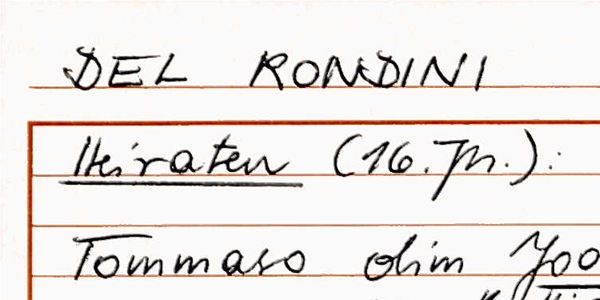 DEL RONDINI
Heiraten (16. Jh.):
Tommaso olim